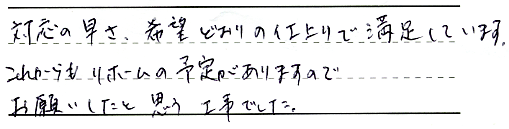 対応の早さ、希望どおりの仕上りで満足しています。
これからもリホームの予定がありますので
お願いしたと思う工事でした。